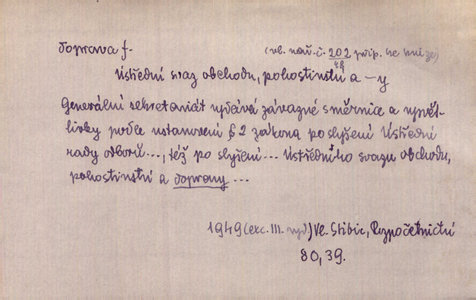 doprava f.
(vl. nař. č. 202 příp. ke knize)
48
Ústřední svaz obchodu, pohostinství a –y
Generální sekretariát vydává závazné směrnice a vysvět-
livky podle ustanovení § 2 zákona po slyšení Ústřední
rady odborů..., též po slyšení... Ústředního svazu obchodu,
pohostinství a dopravy ...
1949 (exc. III. vyd.) Vl. Stibic, Rozpočetnictví
80, 39.